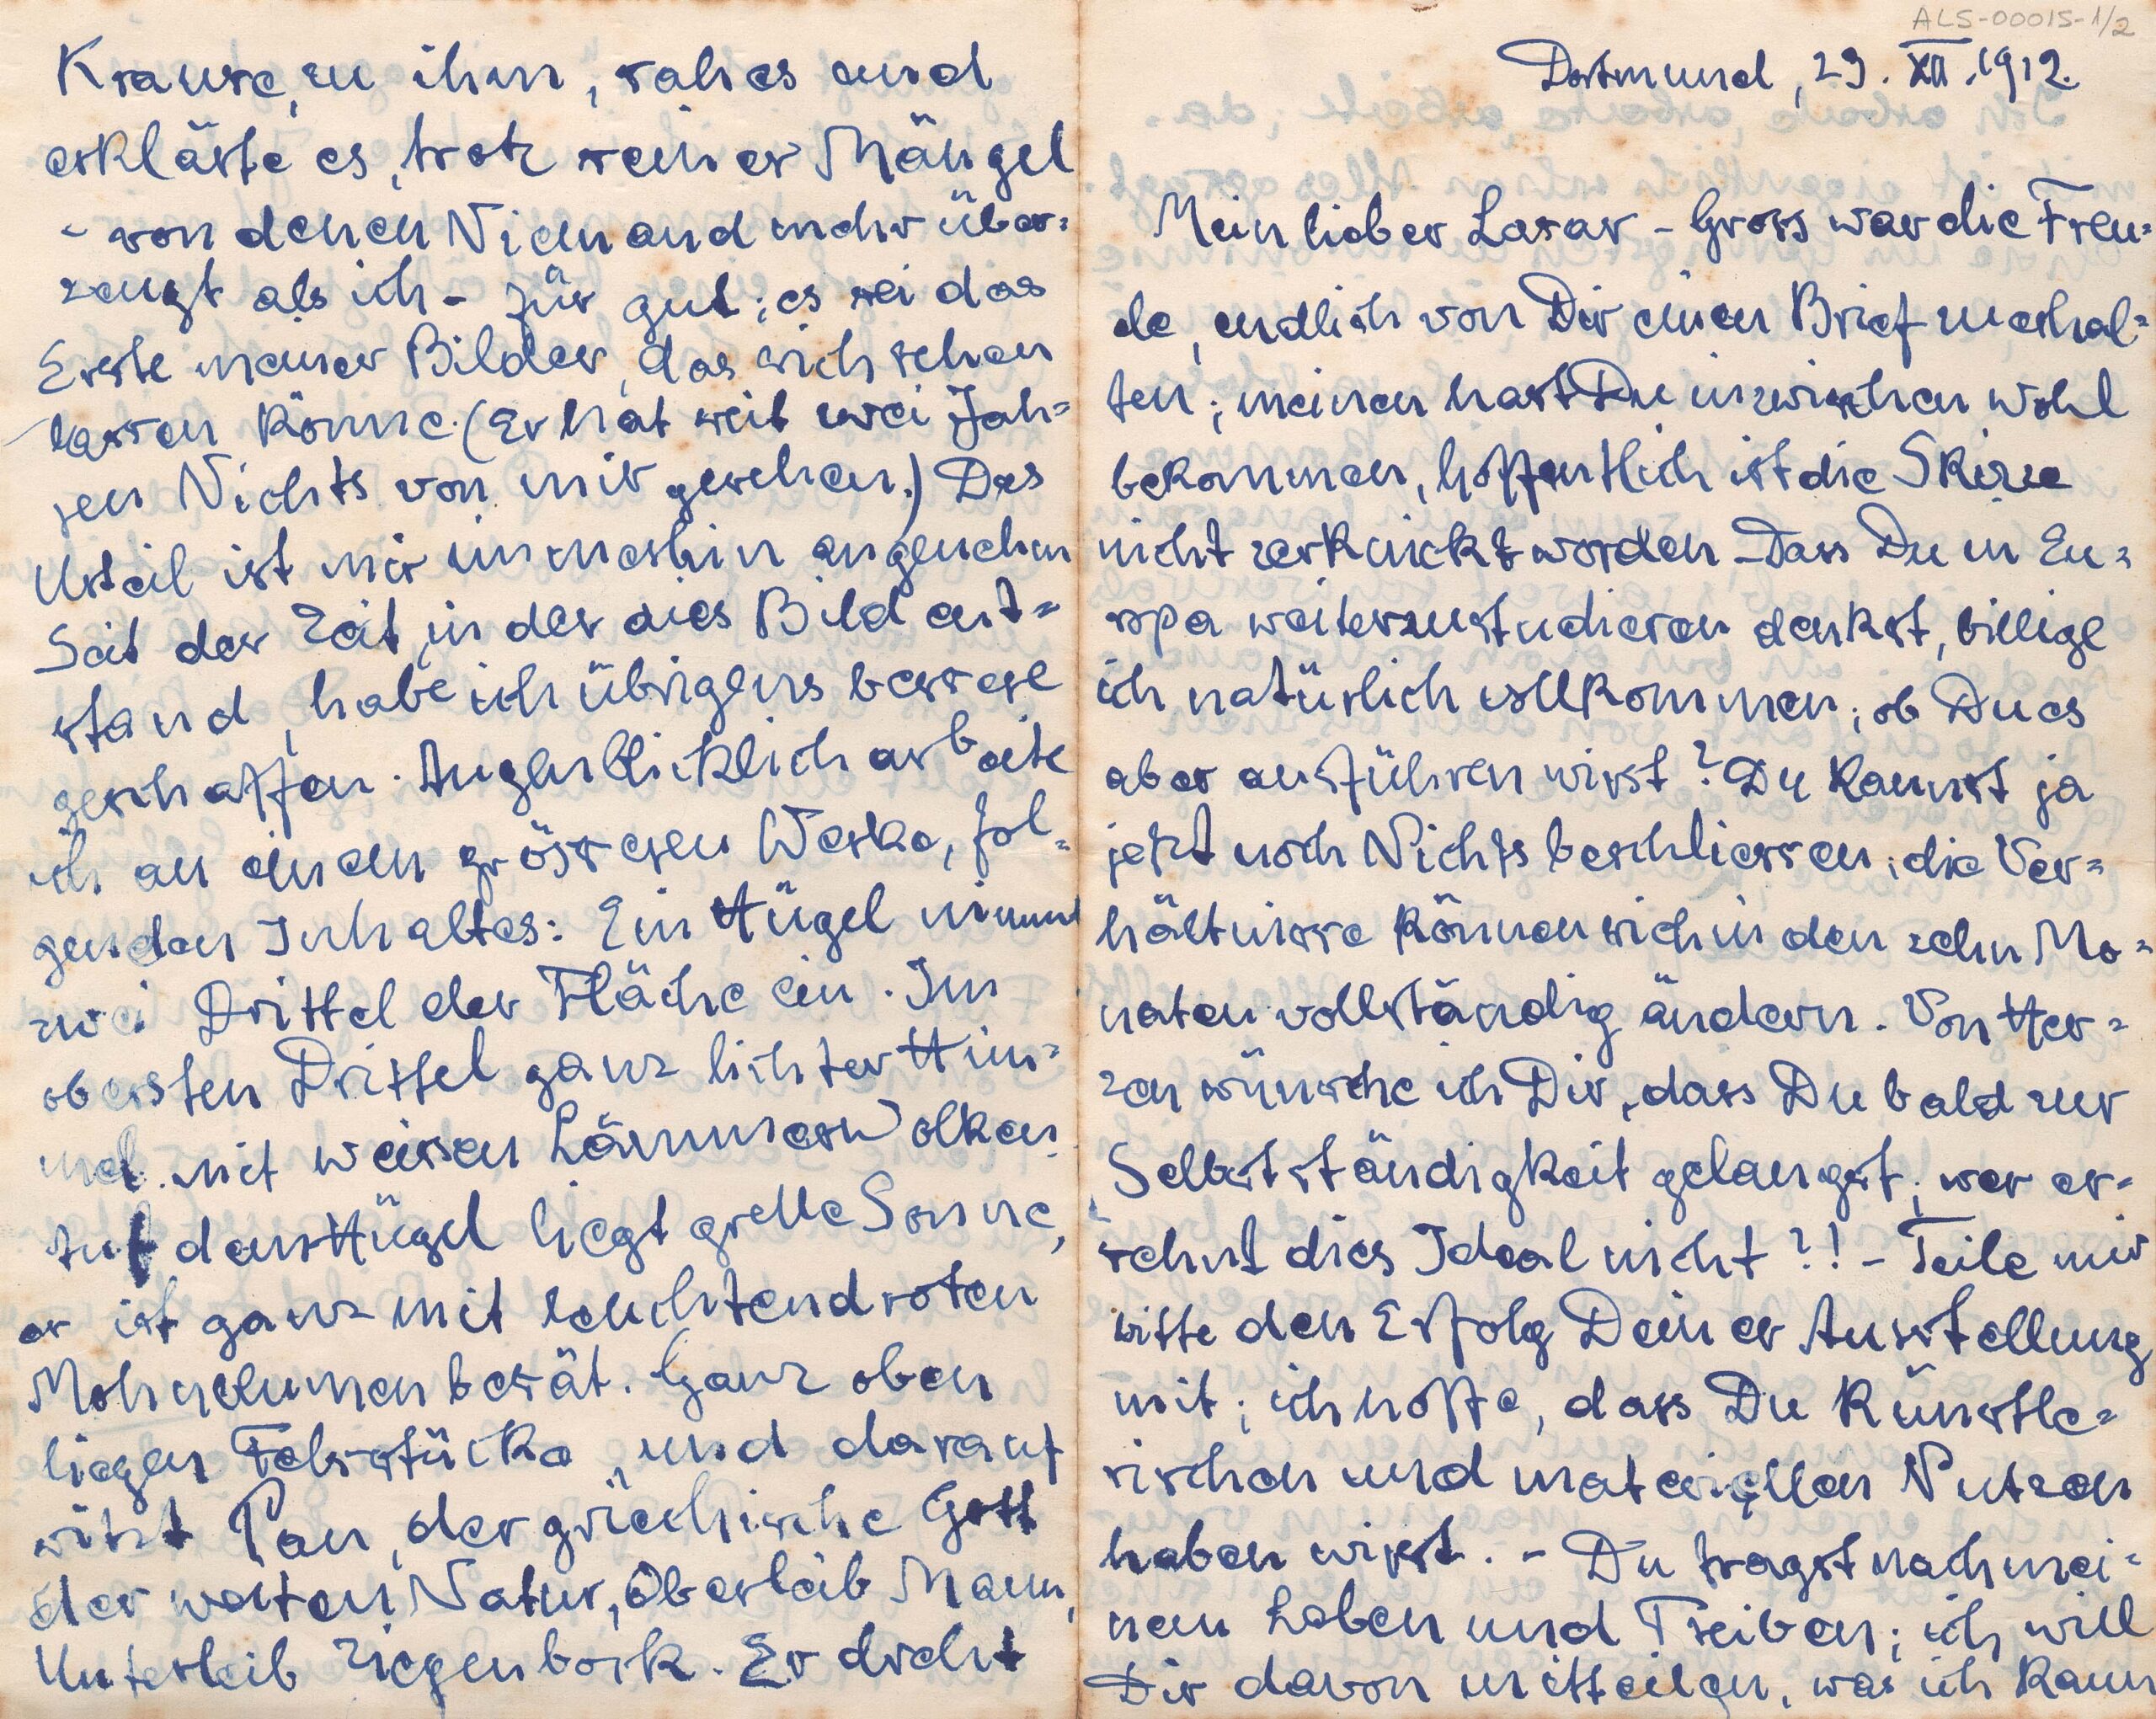 ALS-00015-1/2
Dortmund, 29. XII. 1912.
Mein lieber Lasar - Gross war die Freu=
de, endlich von Dir einen Brief zu erhal=
ten; meinen hast Du inzwischen wohl
bekommen, hoffentlich ist die Skizze
nicht zerknickt worden - Dass Du in Eu=
ropa weiterzustudieren denkst, billige
ich natürlich vollkommen; ob Du es
aber ausführen wirst? Du kannst ja
jetzt noch Nichts beschliessen; die Ver=
hältnisse können sich in den zehn Mo=
naten vollständig ändern. Von Her=
zen wünsche ich Dir, dass Du bald zur
Selbstständigkeit gelangst; wer er=
sehnt dies Ideal nicht?! - Teile mir
bitte den Erfolg Deiner Ausstellung
mit; ich hoffe, dass Du künstle=
rischen und materiellen Nutzen
haben wirst. - Du fragst nach mei=
nem Leben und Treiben; ich will
Dir davon mitteilen, was ich kann
Krause, zu ihm, sah es und
erklärte es, trotz seiner Mängel
- von denen Niemand mehr über=
zeugt als ich - für gut; es sei das
Erste meiner Bilder, das sich sehen
lassen könne. (Er hat seit zwei Jah=
ren Nichts von mir gesehen.) Das
Urteil ist mir immerhin angenehm
Seit der Zeit, in der dies Bild ent=
stand, habe ich übrigens bessere
geschaffen. Augenblicklich arbeite
ich an einem grösseren Werke, fol=
genden Inhaltes: Ein Hügel nimmt
zwei Drittel der Fläche ein. Im
obersten Drittel ganz lichter Him=
mel mit weisen Lämmerwolken.
Auf dem Hügel liegt grelle Sonne,
er ist ganz mit leuchtend roten
Mohnblumen besät. Ganz oben
liegen Felsstücke und darauf
sitzt Pan, der griechische Gott
der weiten Natur, Oberleib Mann,
Unterleib Ziegenbock. Er dreht